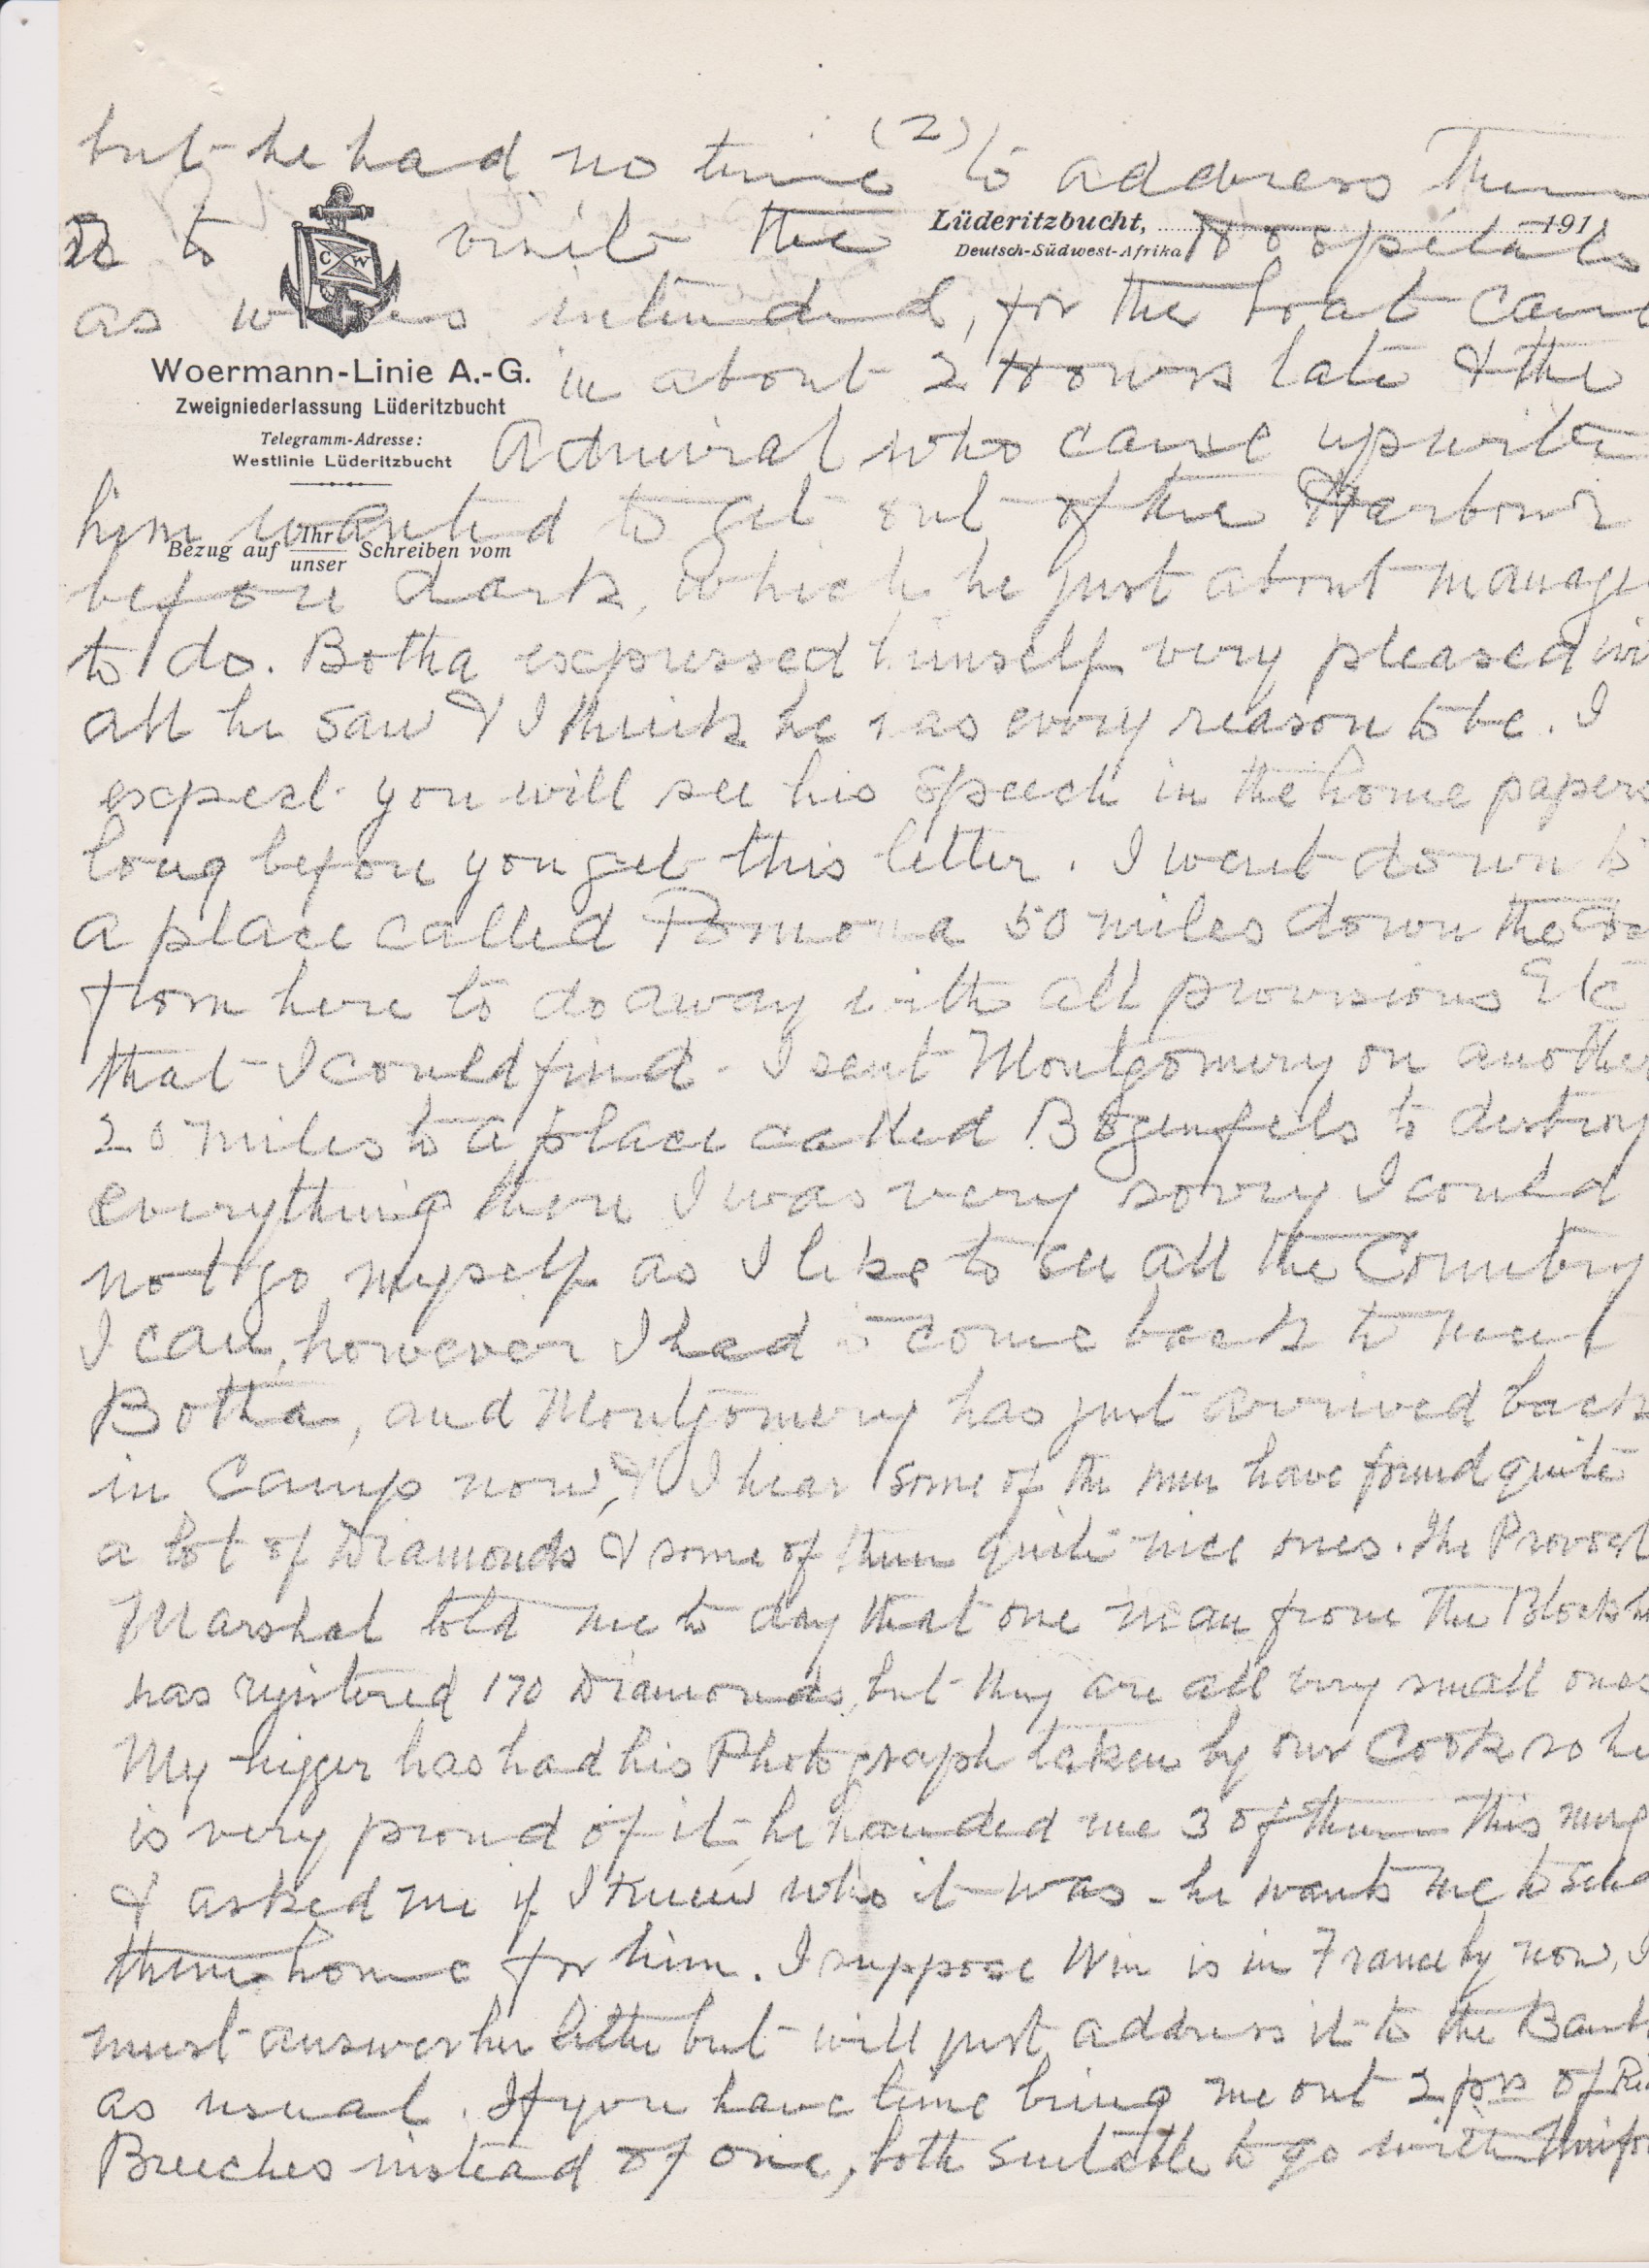 (2)
but he had no time to address them
or to visit the Hospitals
Lüderitzbucht, 191
Deutsch-Südwest-Afrika
C W
as was intended, for the boat came
Woermann-Linie A.-G.
Zweigniederlassung Lüderitzbucht
in about 2 Hours late & the
Telegramm-Adresse:
Westlinie Lüderitzbucht
Admiral who came up with
him wanted to get out of the Harbour
Bezug auf Ihr/unser Schreiben vom
before dark, which he just about manage
to do. Botha expressed himself very pleased wi
all he saw & I think he has every reason to be. I
expect you will see his speech in the home papers
long before you get this letter. I went down to
a place called Pomona 50 miles down the Co
from here to do away with all provisions Etc
that I could find - I sent Montgomery on another
20 miles to a place called Bogenfels to destroy
everything there I was very sorry I could
not go myself as I like to see all the Country
I can, however I had to come back to meet
Botha, and Montgomery has just arrived back
in Camp now, & I hear some of the men have found quite
a lot of Diamonds & some of them quite nice ones. The Provost
Marshal told me to day that one man from the Blockh
has registered 170 Diamonds, but they are all very small ones
My nigger has had his Photograph taken by our Cook so he
is very proud of it, he handed me 3 of them this mng
& asked me if I knew who it was - he wants me to send
them home for him. I suppose Win is in France by now, I
must answer her letter but will just address it to the Bank
as usual. If you have time bring me out 2 prs of Ri
Breeches instead of one, both suitable to go with Unifo